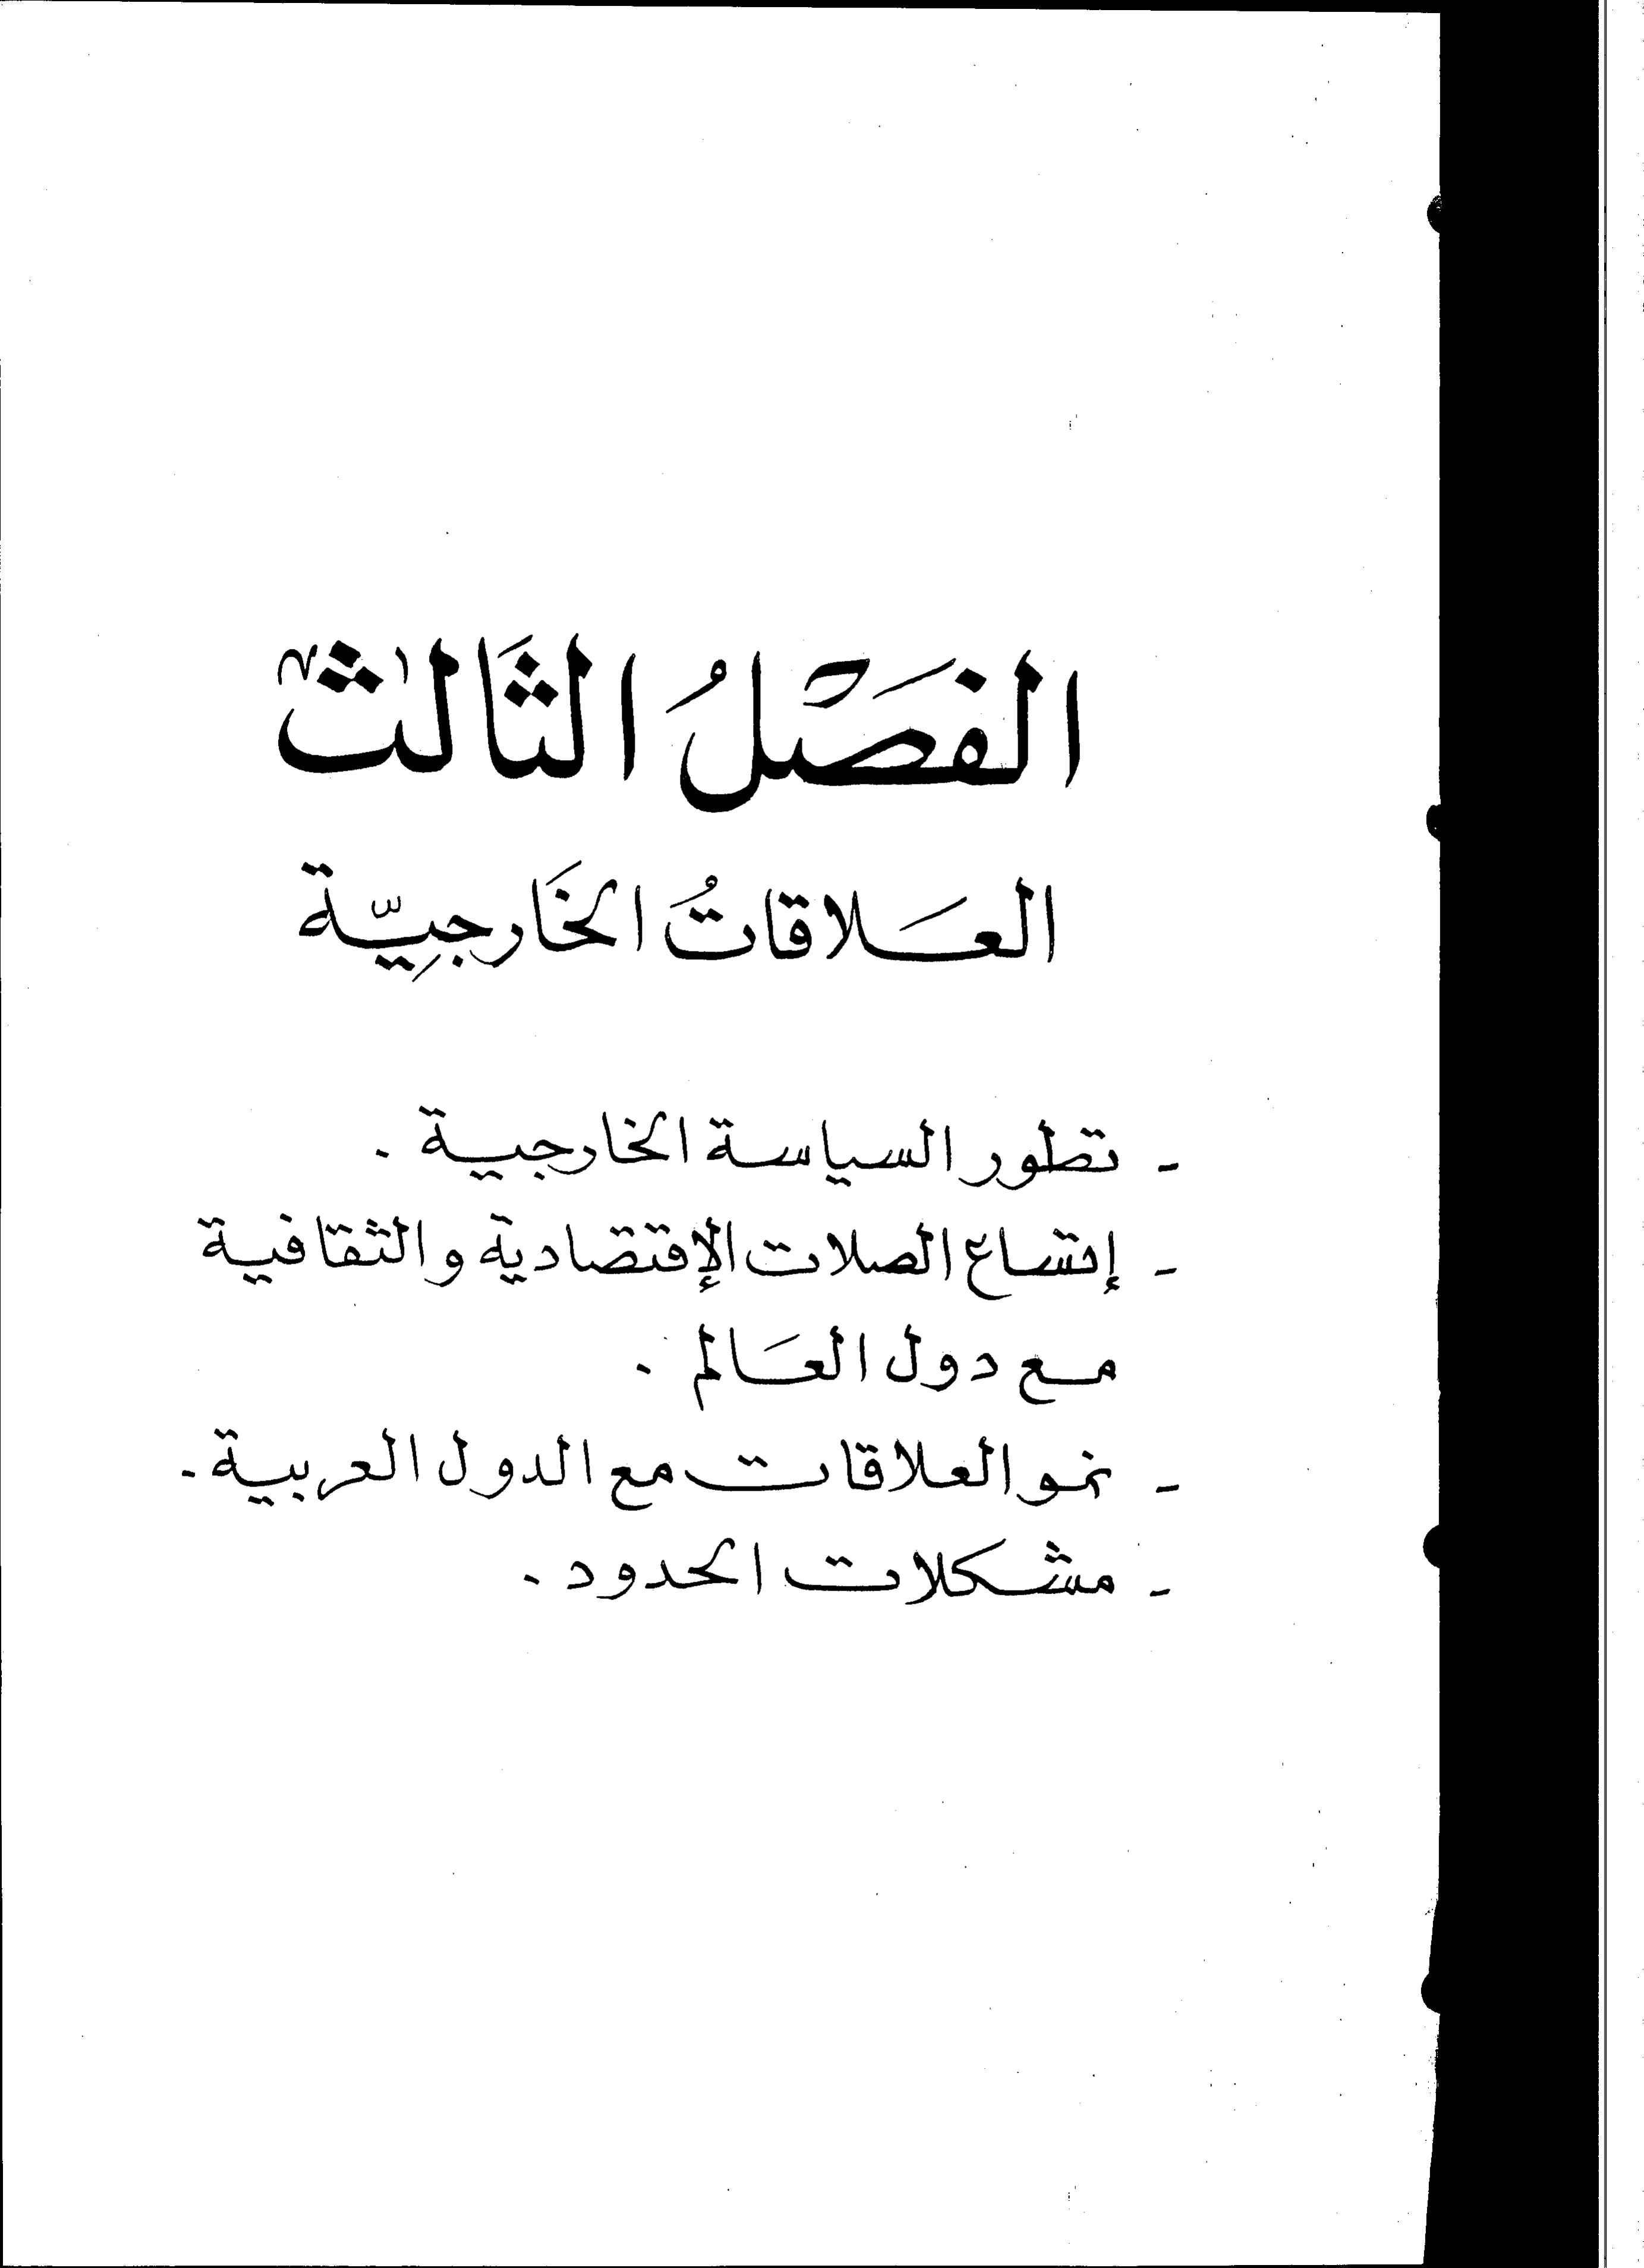 الفَصْلُ الثَالث
العَلاقاتُ الخَارجِيّة
- تطور السياسة الخارجية .
- إتساع الصلات الإقتصادية والثقافية
مع دول العَالم .
- نمو العلاقات مع الدول العربية .
- مشكلات الحدود .